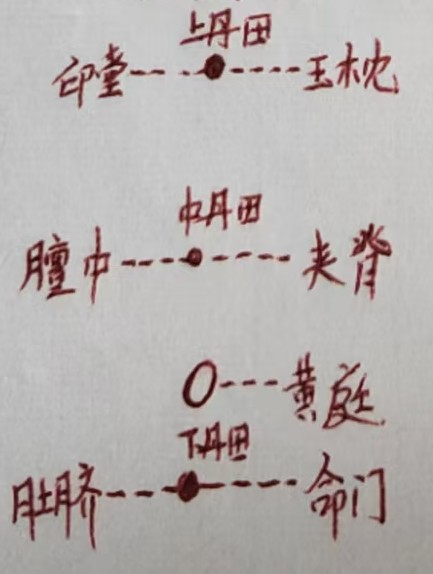 上丹田
印堂 玉枕
中丹田
膻中 夹脊
黄庭
下丹田
肚脐 命门